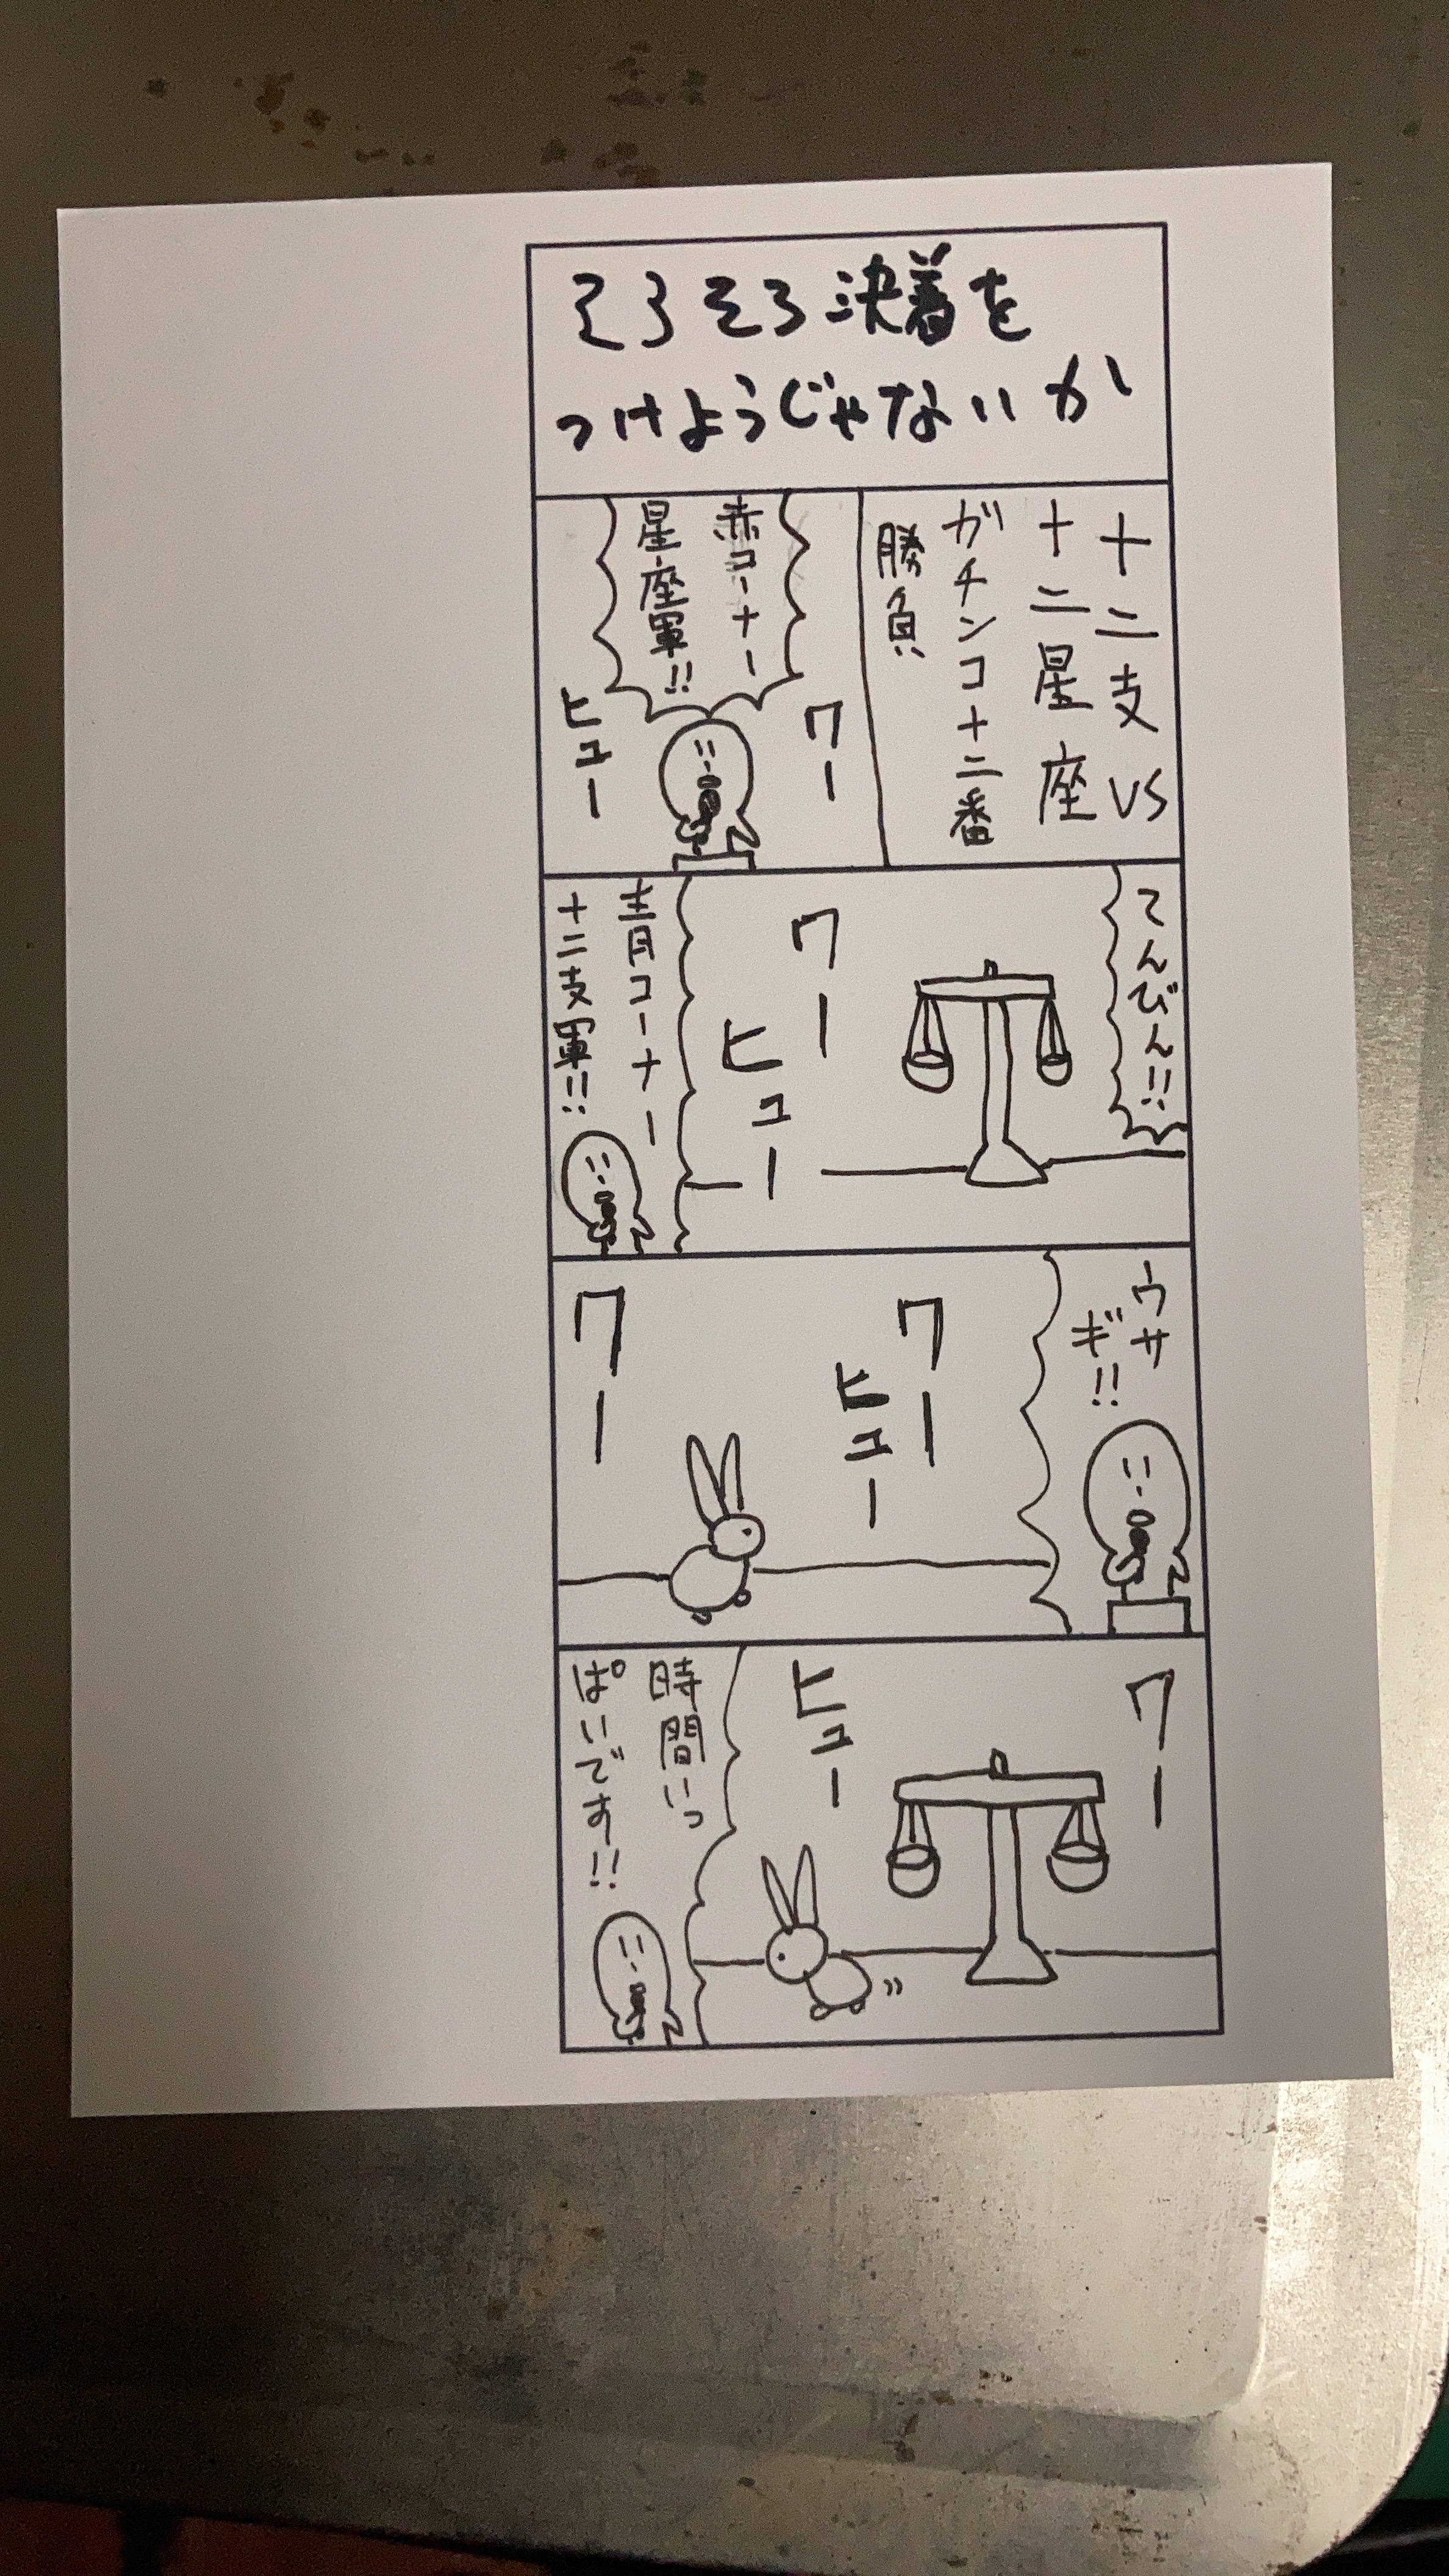 そろそろ決着を
つけようじゃないか
十二支VS
十二星座
ガチンコ十二番
勝負!!
ワー
赤コーナー
星座軍!!
ヒュー
てんびん!!
ワー
ヒュー
青コーナー
十二支軍!!
ウサ
ギ!!
ワー
ヒュー
ワー
ワー
ヒュー
時間いっ
ぱいです!!